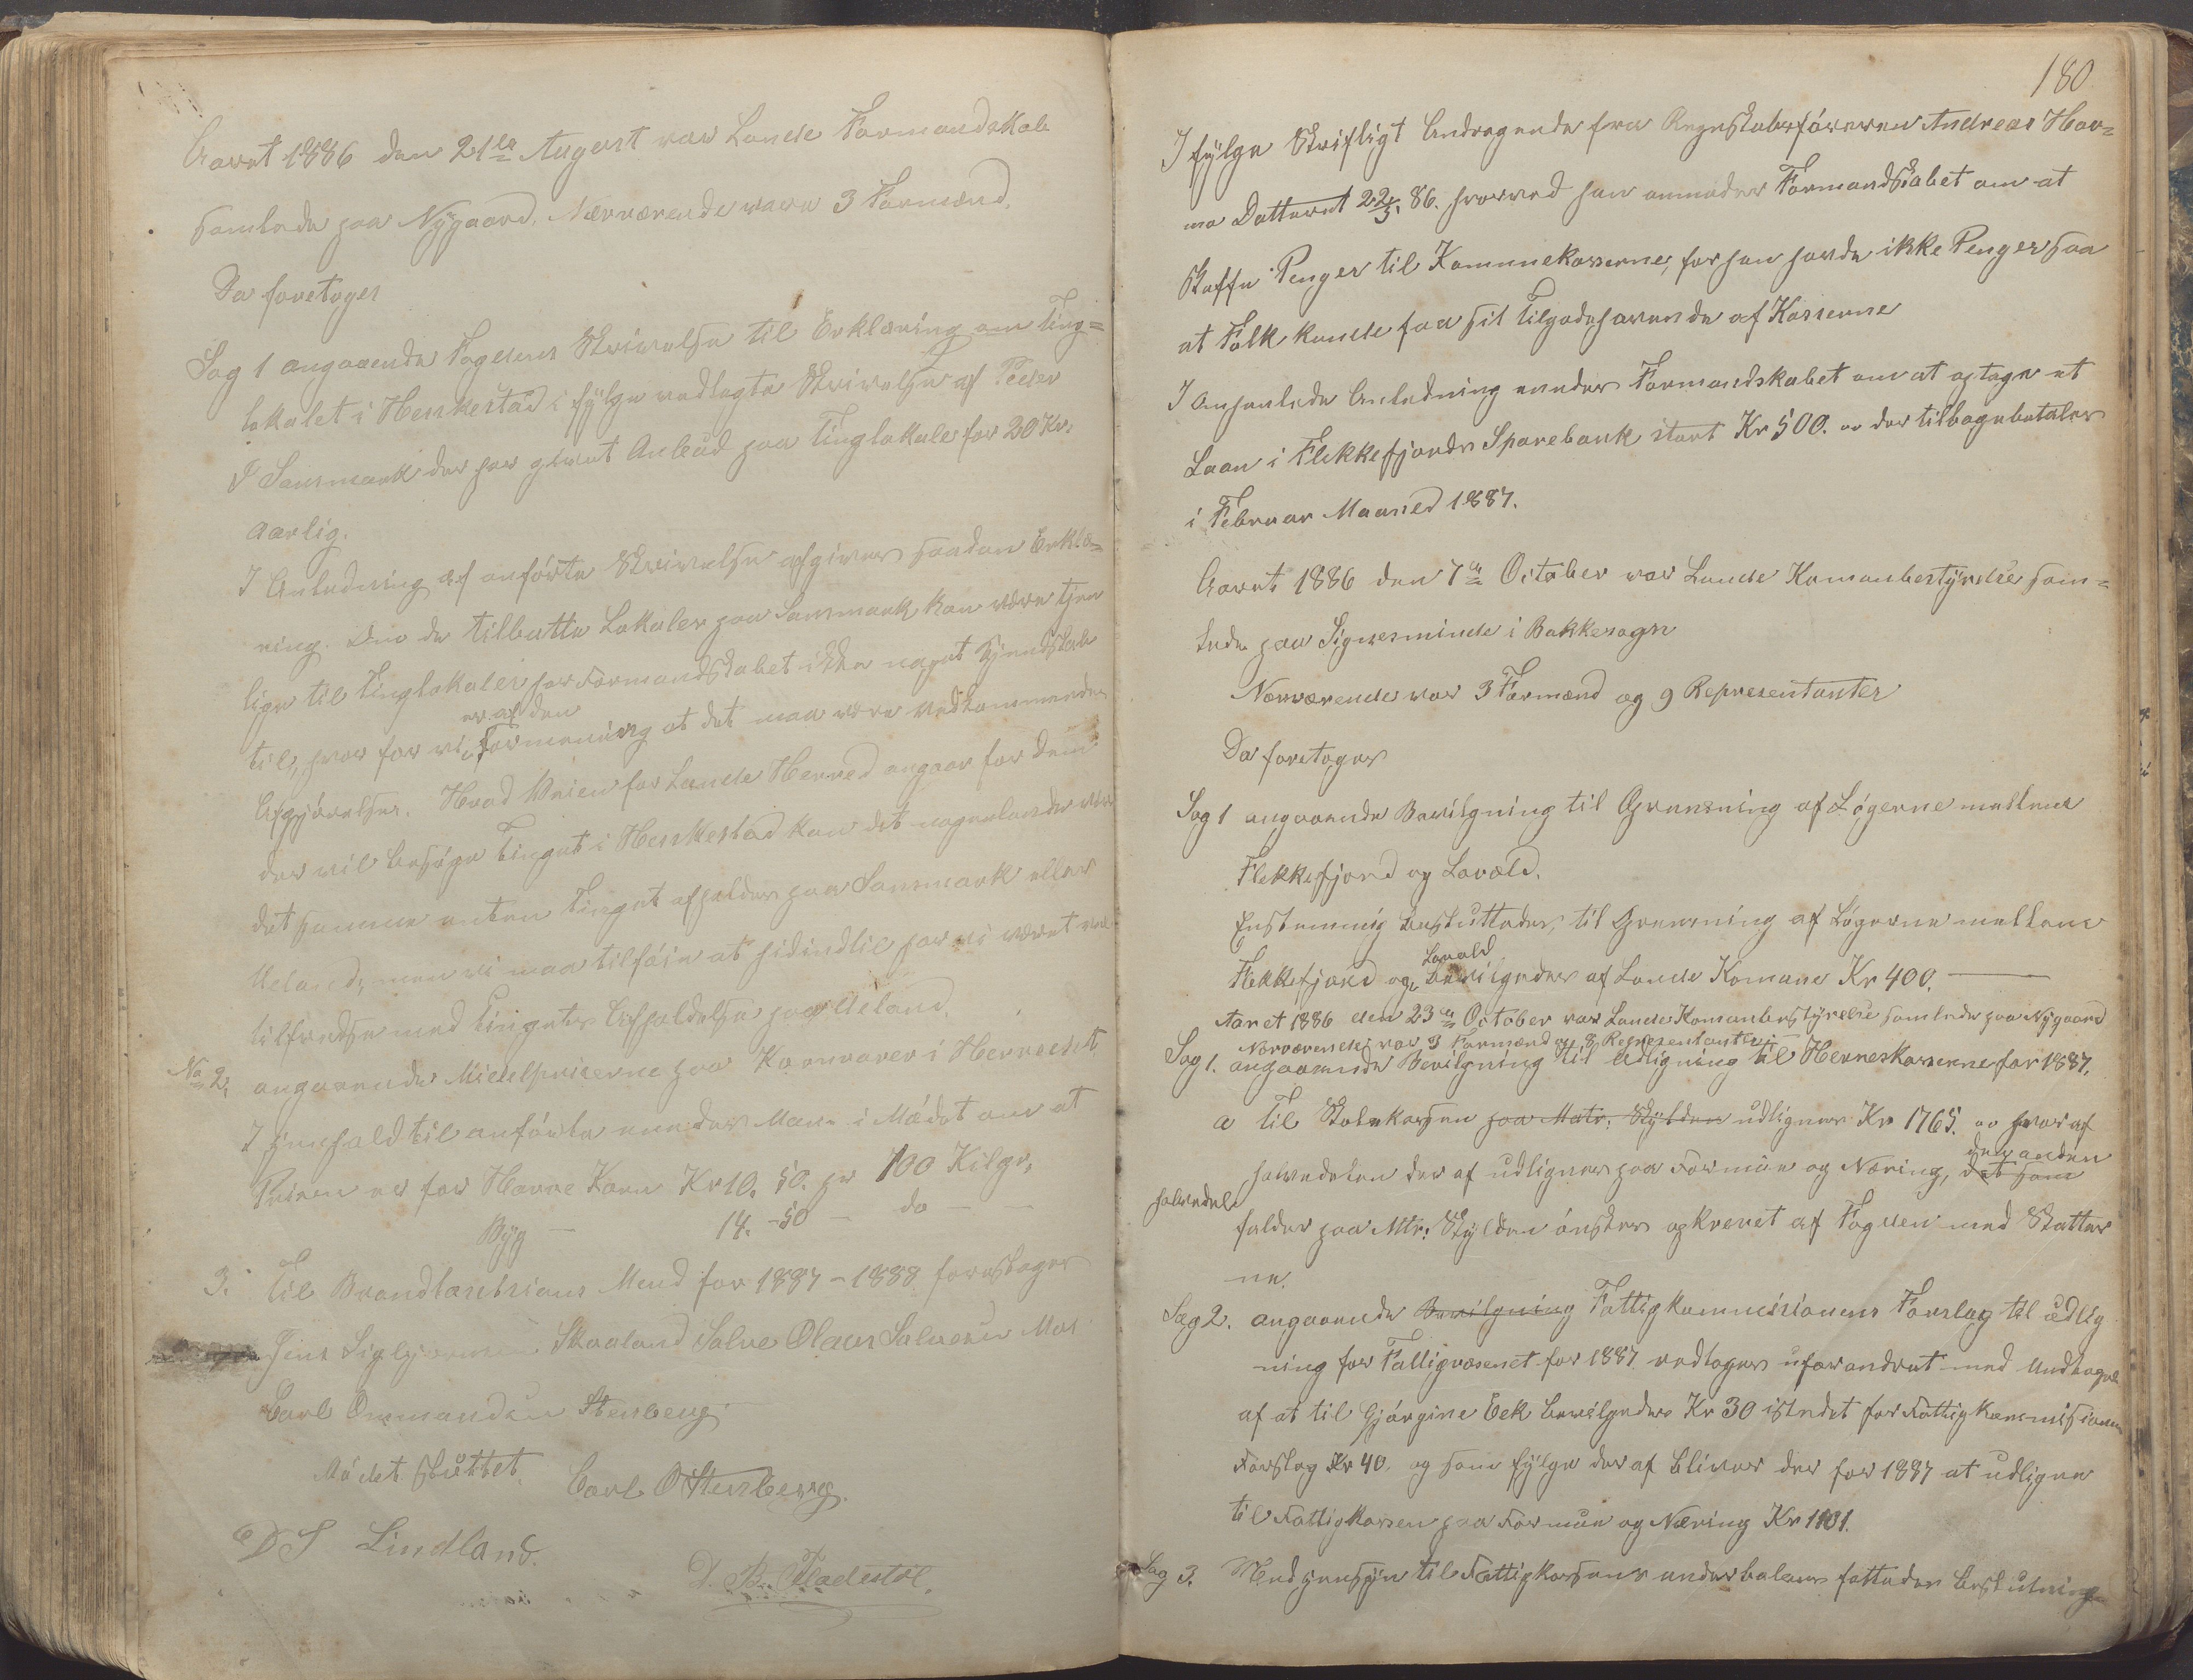 Aaret 1886 den 21de August var Lunde Formandskab
samlede paa Nygaard, Nærværende vare 3 Formænd,
Da foretoges
Sag 1 angaaende Fogdens Skrivelse til Erklæring om Ting=
lokalet i Heskestad i følge vedlagte Skrivelse af Peder
P Sansmark der har givet Anbud paa Tinglokale for 20 Kr.
aarlig.
I Anledning af anførte Skrivelse afgives saadan Erklæ=
ring. Om de tilbutte Lokaler paa Sansmark kan være tjen
lige til Tinglokaler har Formandskabet ikke noget Kjendskab
er af den
til, hvor for vi Formening at det maa være Vedkommendes
Afgjørelser. Hvad Veien for Lunde Herred angaar for dem
der vil besøge Tinget i Heskestad kan det nogenlunde være
det samme enten Tinget afholdes paa Sansmark eller
Ueland, men vi maa tilføie at hidindtil har vi været vel
tilfredse med Tingets Afholdelse paa Ueland.
No 2, angaaende Middelpriserne paa Kornvarer i Herredet
I Henhold til anførte enedes Man i Mødet om at
Prisen er for Havre Korn Kr 10. 50. pr 100 Kilgr,
Byg — 14. -50 — do — —
3. Til Brandtaxtsions Mend for 1887-1888 foreslages
Jens Sigbjørnsen Skaaland Salve Olaus Salvesen Moi
Carl Ommundsen Stenberg
Mødet sluttet. Carl O Stenberg.
D S Lindland.
D. B. Fladestøl.
180
I følge Skrifligt Andragende fra Regnskabsføreren Andreas Hov=
me Datteret 22/5. 86. hvorved han anmoder Formandskabet om at
skaffe Penger til Kommekasserne, for han havde ikke Penger saa
at Folk kunde faa sit tilgodehavende af Kasserne
I Anførte Anledning enedes Formandskabet om at optage et
Laan i Flekkefjords Sparebank stort Kr 500. der tilbagebetales
i Februar Maaned 1887.
Aaret 1886 den 7de October var Lunde Komunbestyrelse sam=
lede paa Signesminde i Bakkesogn
Nærværende var 3 Formænd og 9 Representanter
Da foretoges
Sag 1 angaaende Bevilgning til Grensning af Løgerne mellem
Flekkefjord og Lavold.
Enstemmig besluttedes, til Grensning af Løgerne mellem
Lavold
Flekkefjord og bevilgedes af Lunde Komune Kr 400. —
Aaret 1886 den 23de October var Lunde Komunbestyrelse samlede paa Nygaard
Nærværende var 3 Formænd og 8 Representanter
Sag 1. angaaende Bevilgning til Udligning til Herredskasserne for 1887.
a Til Skolekassen paa Matr: Skylden udlignes Kr 1765. hvor af
den anden
halvdelen der af udlignes paa Formue og Næring, det som
halvdel
falder paa Mtr: Skylden ønskes opkrevet af Fogden med Skatter
ne.
Sag 2. angaaende Bevilgning Fattigkommissionens Forslag til udlig
ning for Fattigvæsenet for 1887 vedtoges uforandret med Undtagelse
af at til Gjørgine Eek bevilgedes Kr 30 istedet for Fattigkommissionens
Forslag Kr 40, og som følge der af bliver der for 1887 at udligne
til Fattigkassen paa Formue og Næring Kr 1101.
Sag 3. Med Hensyn til Fattigkassens underbalanse fattedes beslutning